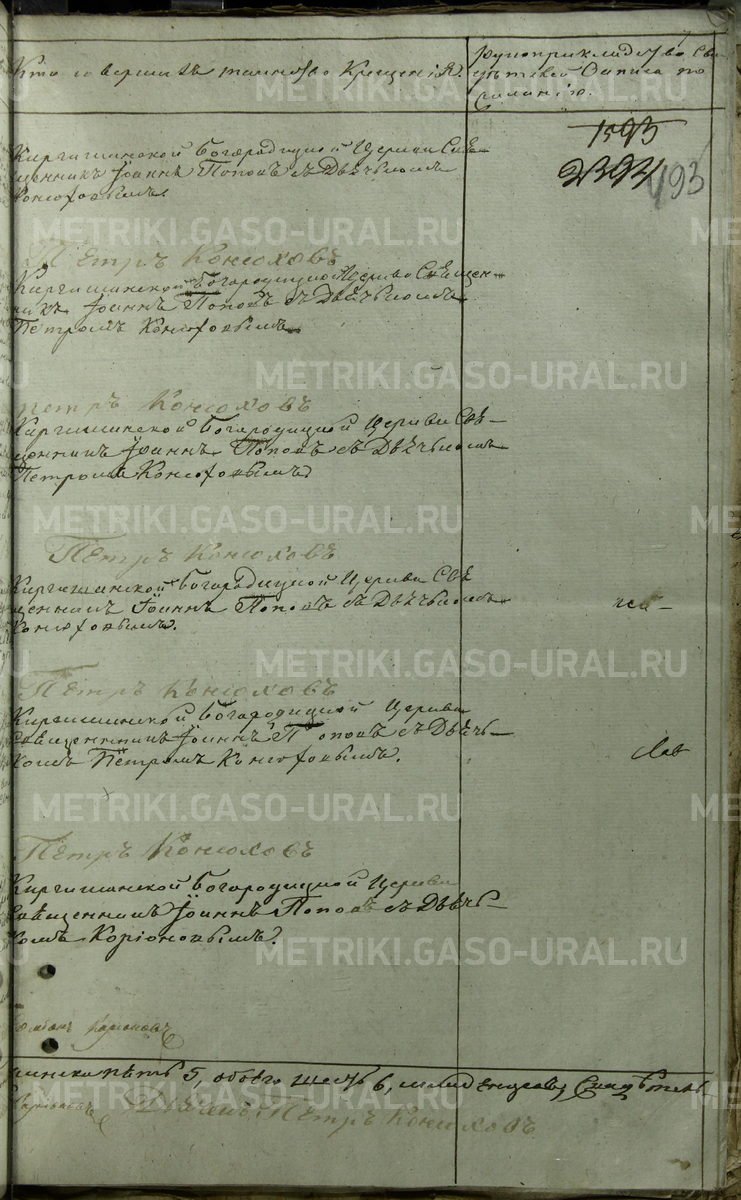 Кто совершалъ таинство Крещенія.
Рукоприкладство Сви-
дѣтелей Записа по
Желанію.
1595
2394
493
Киргишанской Богородицкой Церкви Свя-
щенникъ Іоаннъ Поповъ съ Дьячькомъ
Конюховымъ
Петръ Конюховъ
Киргишанской Богородицкой Церкви Священ-
никъ Іоаннъ Поповъ съ Дьячькомъ
Петромъ Конюховымъ
петръ Конюховъ
Киргишанской Богородицкой Церкви Свя-
щенникъ Іоаннъ Поповъ съ Дьячькомъ
Петромъ Конюховымъ
Петръ Конюховъ
Киргишанской Богородицкой Церкви Свя
щенникъ Іоаннъ Поповъ съ Дьячькомъ
Конюховымъ.
Петръ Конюховъ
Киргишанской Богородицкой Церкви
Священникъ Іоаннъ Поповъ съ Дьячь-
комъ Петромъ Конюховымъ.
Петръ Конюховъ
Киргишанской Богородицкой Церкви
Священникъ Іоаннъ Поповъ съ Дьячь-
комъ Коріоновымъ.
Каріоновъ
пять 5, обоего шесть 6, младенцовъ,
Дьячекъ Петръ Конюховъ
METRIKI.GASO-URAL.RU